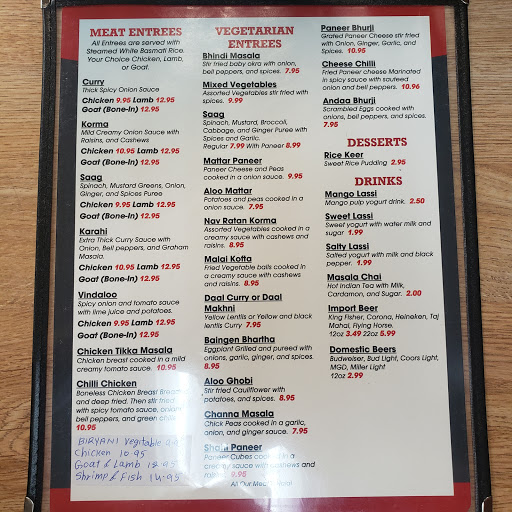 MEAT ENTREES
All Entrees are served with
Steamed White Basmati Rice.
Your Choice Chicken, Lamb,
or Goat.
Curry
Thick Spicy Onion Sauce
Chicken 9.95 Lamb 12.95
Goat (Bone-In) 12.95
Korma
Mild Creamy Onion Sauce with
Raisins, and Cashews
Chicken 10.95 Lamb 12.95
Goat (Bone-In) 12.95
Saag
Spinach, Mustard Greens, Onion,
Ginger, and Spices Puree
Chicken 9.95 Lamb 12.95
Goat (Bone-In) 12.95
Karahi
Extra Thick Curry Sauce with
Onion, Bell peppers, and Graham
Masala.
Chicken 10.95 Lamb 12.95
Goat (Bone-In) 12.95
Vindaloo
Spicy onion and tomato sauce
with lime juice and potatoes.
Chicken 9.95 Lamb 12.95
Goat (Bone-In) 12.95
Chicken Tikka Masala
Chicken breast cooked in a mild
creamy tomato sauce. 10.95
Chilli Chicken
Boneless Chicken Breast Bread
and deep fried. Then stir fried
with spicy tomato sauce, onion,
bell peppers, and green chilli
10.95
BIRYANI Vegitable 9.95
Chicken 10-95
Goat & Lamb 12-95
Shrimp & Fish 14-95
VEGETARIAN
ENTREES
Bhindi Masala
Stir fried baby okra with onion,
bell peppers, and spices. 7.95
Mixed Vegetables
Assorted Vegetables stir fried with
spices. 9.99
Saag
Spinach, Mustard, Broccoli,
Cabbage, and Ginger Puree with
Spices and Garlic.
Regular 7.99 With Paneer 8.99
Mattar Paneer
Paneer Cheese and Peas
cooked in a onion sauce. 9.95
Aloo Mattar
Potatoes and peas cooked in a
onion sauce. 7.95
Nav Ratan Korma
Assorted Vegetables cooked in a
creamy sauce with cashews and
raisins. 8.95
Malai Kofta
Fried Vegetable balls cooked in
a creamy sauce with cashews
and raisins. 8.95
Daal Curry or Daal
Makhni
Yellow Lentils or Yellow and black
lentils Curry 7.95
Baingen Bhartha
Eggplant Grilled and pureed with
onions, garlic, ginger, and spices.
8.95
Aloo Ghobi
Stir fried Cauliflower with
potatoes, and spices. 8.95
Channa Masala
Chick Peas cooked in a garlic,
onion, and ginger sauce. 7.95
Shahi Paneer
Paneer Cubes cooked in a
creamy sauce with cashews and
9.95
All Our Meat
Paneer Bhurji
Grated Paneer Cheese stir fried
with Onion, Ginger, Garlic, and
Spices. 10.95
Cheese Chilli
Fried Paneer cheese Marinated
in spicy sauce with sauteed
onion and bell peppers. 10.96
Andaa Bhurji
Scrambled Eggs cooked with
onions, bell peppers, and spices.
7.95
DESSERTS
Rice Keer
Sweet Rice Pudding 2.95
DRINKS
Mango Lassi
Mango pulp yogurt drink. 2.50
Sweet Lassi
Sweet yogurt with water milk and
sugar 1.99
Salty Lassi
Salted yogurt with milk and black
pepper. 1.99
Masala Chai
Hot Indian Tea with Milk,
Cardamon, and Sugar. 2.00
Import Beer
King Fisher, Corona, Heineken, Taj
Mahal, Flying Horse.
12oz 3.49 22oz 5.99
Domestic Beers
Budweiser, Bud Light, Coors Light,
MGD, Miller Light
12oz 2.99